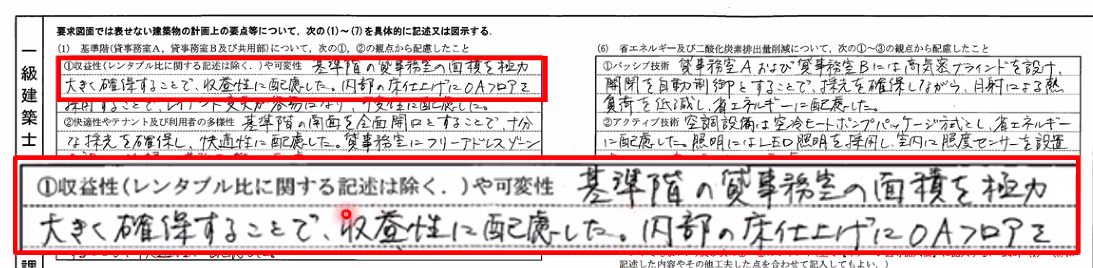 一級建築士
要求図面では表せない建築物の計画上の要点等について、次の(1)～(7)を具体的に記述又は図示する.
(1) 基準階(貸事務室A, 貸事務室B及び共用部)について、次の①, ②の観点から配慮したこと
①収益性(レンタブル比に関する記述は除く. )や可変性 基準階の貸事務室の面積を極力
大きく確保することで、収益性に配慮した。内部の床仕上げにOAフロアを
採用することで、レイアント変更が容易になり、可変性に配慮した。
②快適性やテナント及び利用者の多様性 基準階の開面を全面開口とすることで、十分
な採光を確保し、快適性に配慮した。貸事務室にフリーアドレスゾーン
(6) 省エネルギー及び二酸化炭素排出量削減について、次の①～③の観点から配慮したこと
①パッシブ技術 貸事務室Aおよび貸事務室Bには高気密ブラインドを設け、
開閉を自動制御とすることで、採光を確保しながら、日射による熱
負荷を低減し、省エネルギーに配慮した。
②アクティブ技術 空調設備は空冷ヒートポンプパッケージ方式とし、省エネルギー
に配慮した。照明にはLED照明を採用し、室内に照度センサーを設置
①収益性(レンタブル比に関する記述は除く. )や可変性 基準階の貸事務室の面積を極力
大きく確保することで、収益性に配慮した。内部の床仕上げにOAフロアを
課
記述した内容やその他工夫した点を合わせて記入してもよい. )